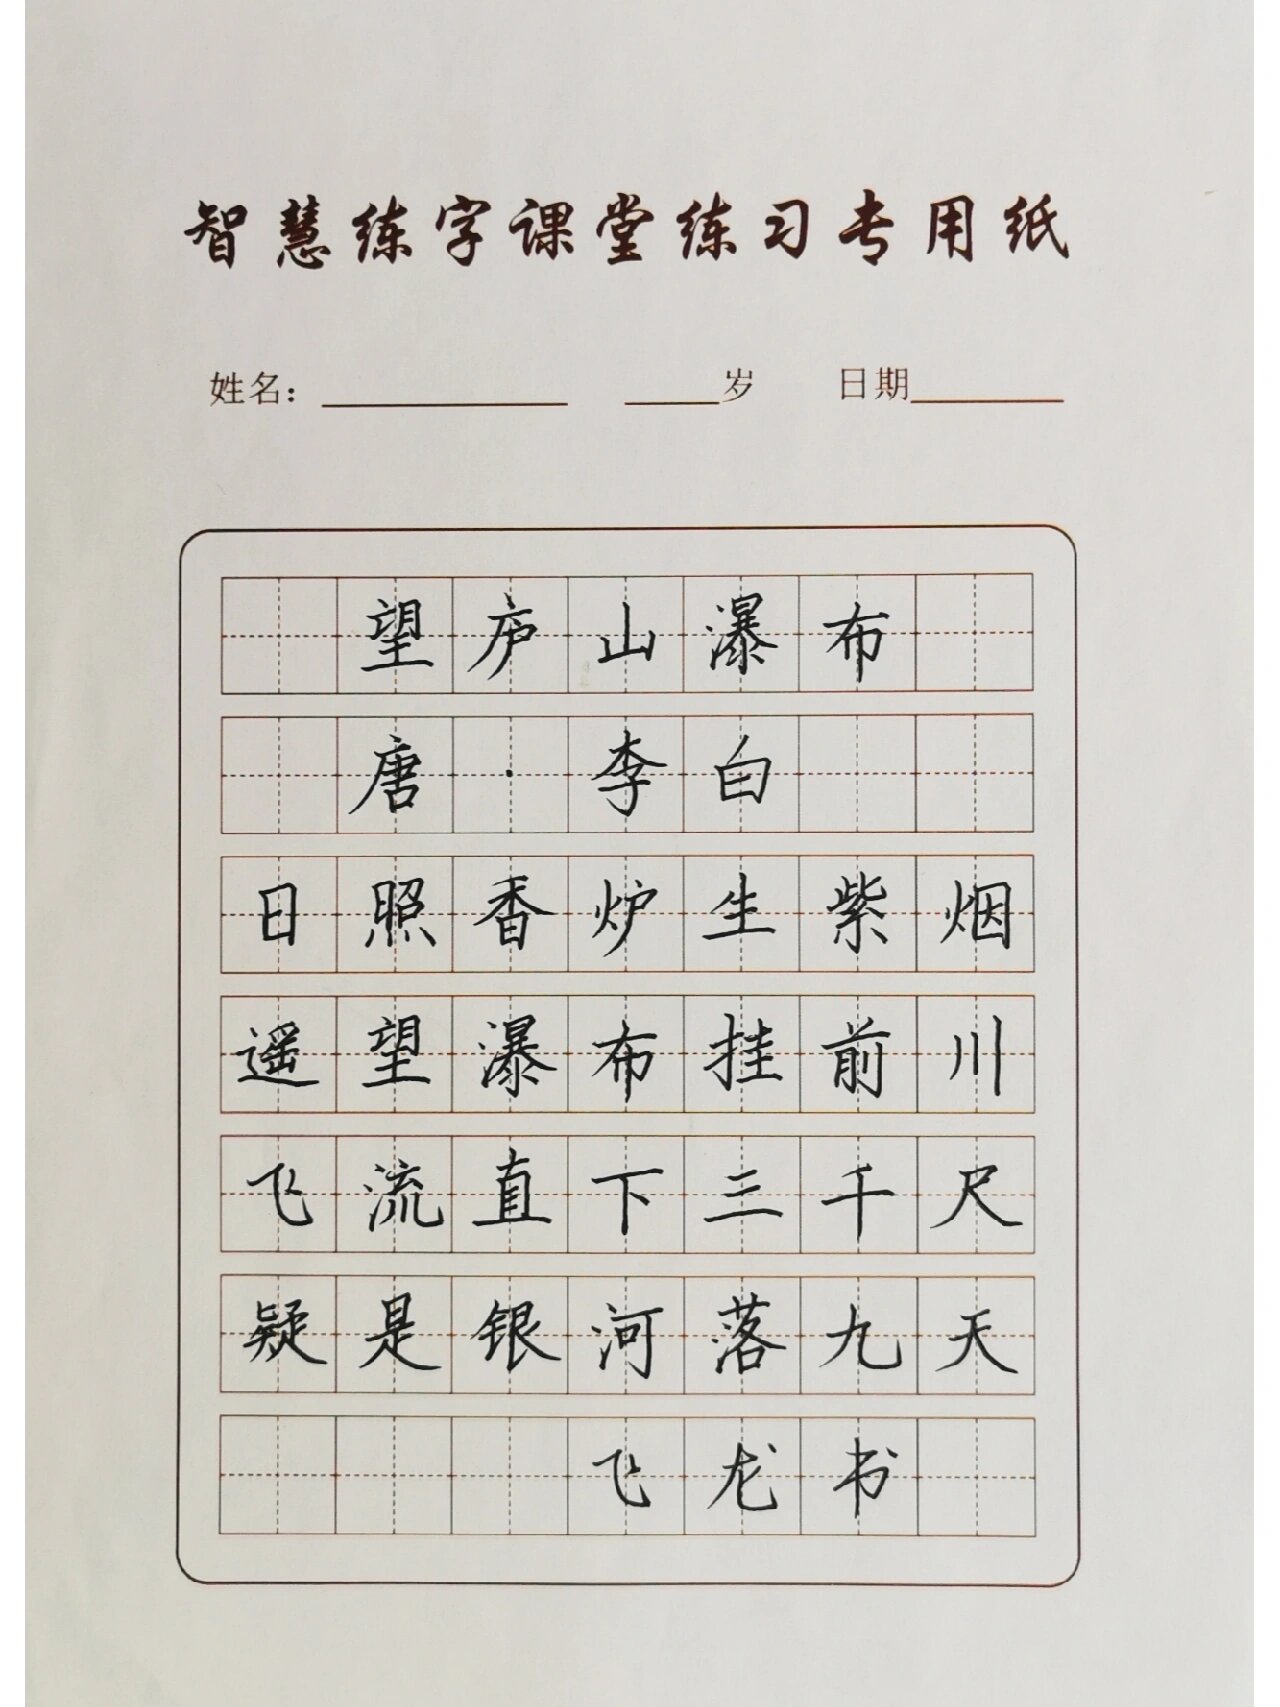 智慧练字课堂练习专用纸
姓名：__________ ____岁 日期______
望庐山瀑布
唐·李白
日照香炉生紫烟
遥望瀑布挂前川
飞流直下三千尺
疑是银河落九天
飞龙书